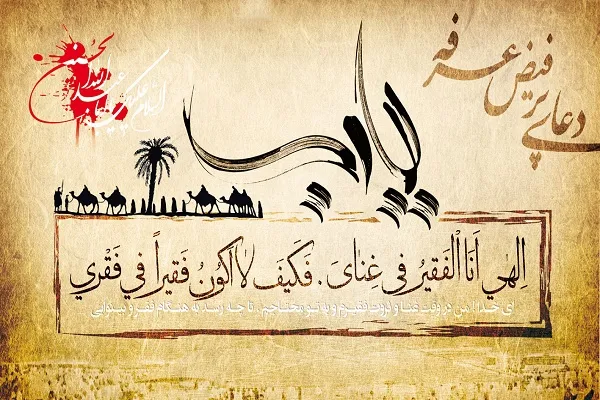 دعای پر فیض عرفه
یا رب
السلام علیک یا ابا عبدالله الحسین
اِلهي اَنَا الْفَقيرُ في غِنایَ. فَكَيْفَ لا اَكُونُ فَقيراً في فَقْري
ای خدا من در وقت غنا و ثروت فقیرم و به تو محتاجم. تا چه رسد به هنگام فقر و بینوایی